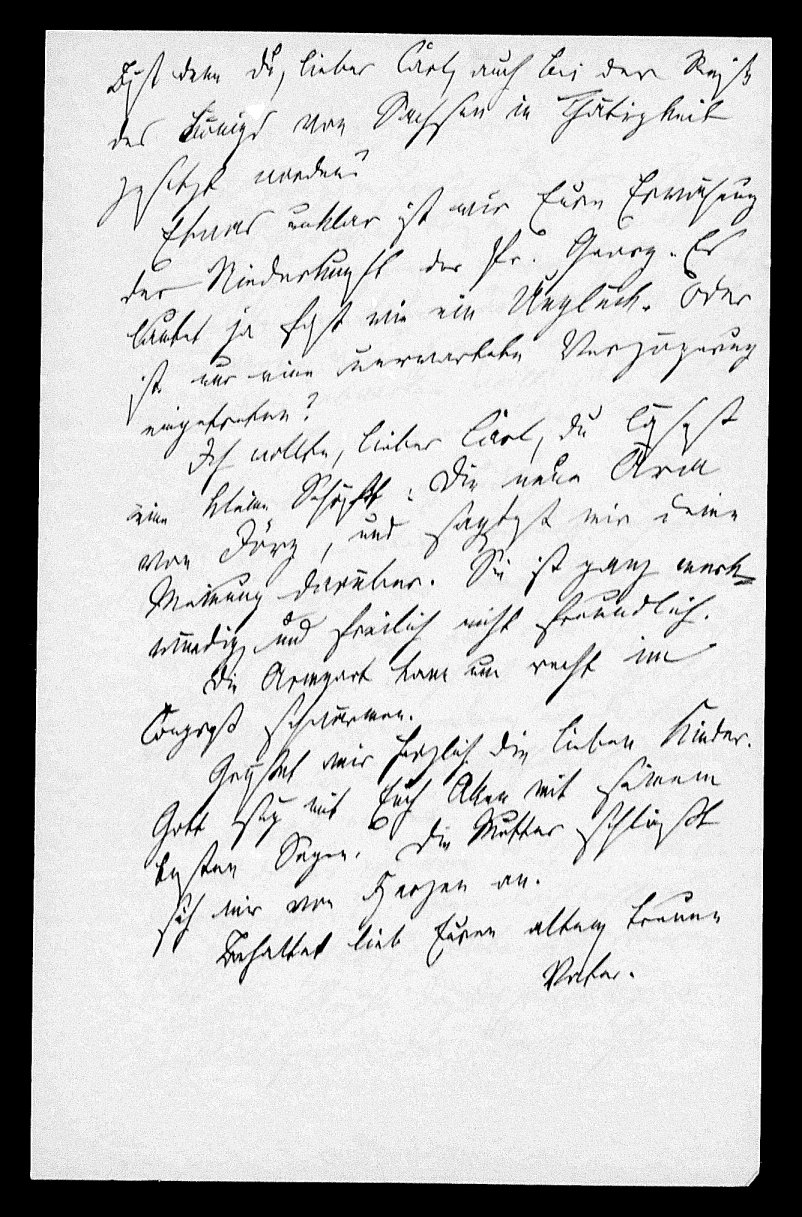 Bist denn du, lieber Carl, auch bei der Reise
des Königs von Sachsen in Thätigkeit
gesetzt worden?
Etwas unklar ist mir Eure Erwähnung
der Niederkunft der Pr. Georg. Es
lautet ja fast wie ein Unglück. Oder
ist nur eine unerwartete Verzögerung
eingetreten?
Ich wollte, lieber Carl, du läsest
eine kleine Schrift: Die neue Aera
von Jörg, und sagtest mir deine
Meinung darüber. Sie ist ganz merk-
würdig und freilich nicht freundlich.
Die Armgart kam um recht im
zu schwärmen.
Grüßet mir herzlich die lieben Kinder.
Gott sey mit Euch Allen mit seinem
besten Segen. Die Mutter schließt
sich mir von Herzen an.
Behaltet lieb Euren alten treuen
Vater.